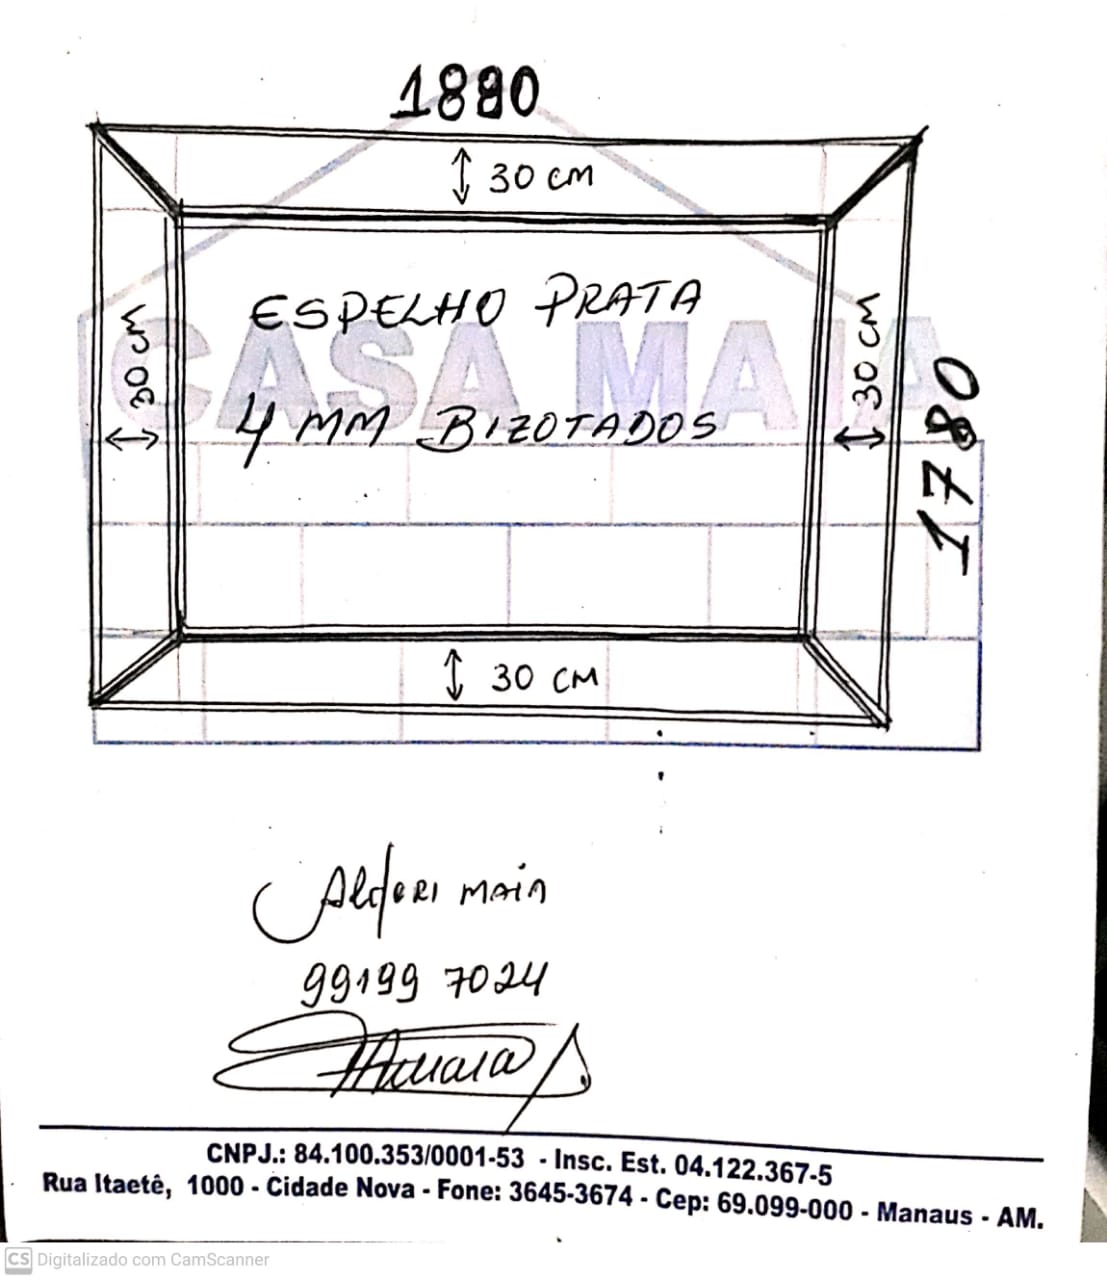 1880
30 cm
ESPELHO PRATA
CASA MAIA
30 cm
30 cm
4 MM BIZOTADOS
1780
30 CM
Alderi maia
99199 7024
CNPJ.: 84.100.353/0001-53 - Insc. Est. 04.122.367-5
Rua Itaetê, 1000 - Cidade Nova - Fone: 3645-3674 - Cep: 69.099-000 - Manaus - AM.
CS Digitalizado com CamScanner